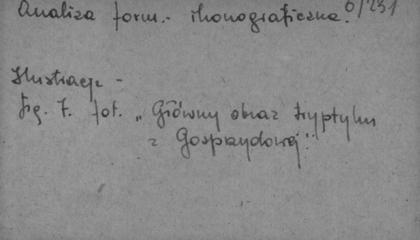 Analiza form.- ikonograficzna. 6/231
Ilustracje -
Fig. 7. fot. „Główny obraz tryptyku
z Gosprzydowej"